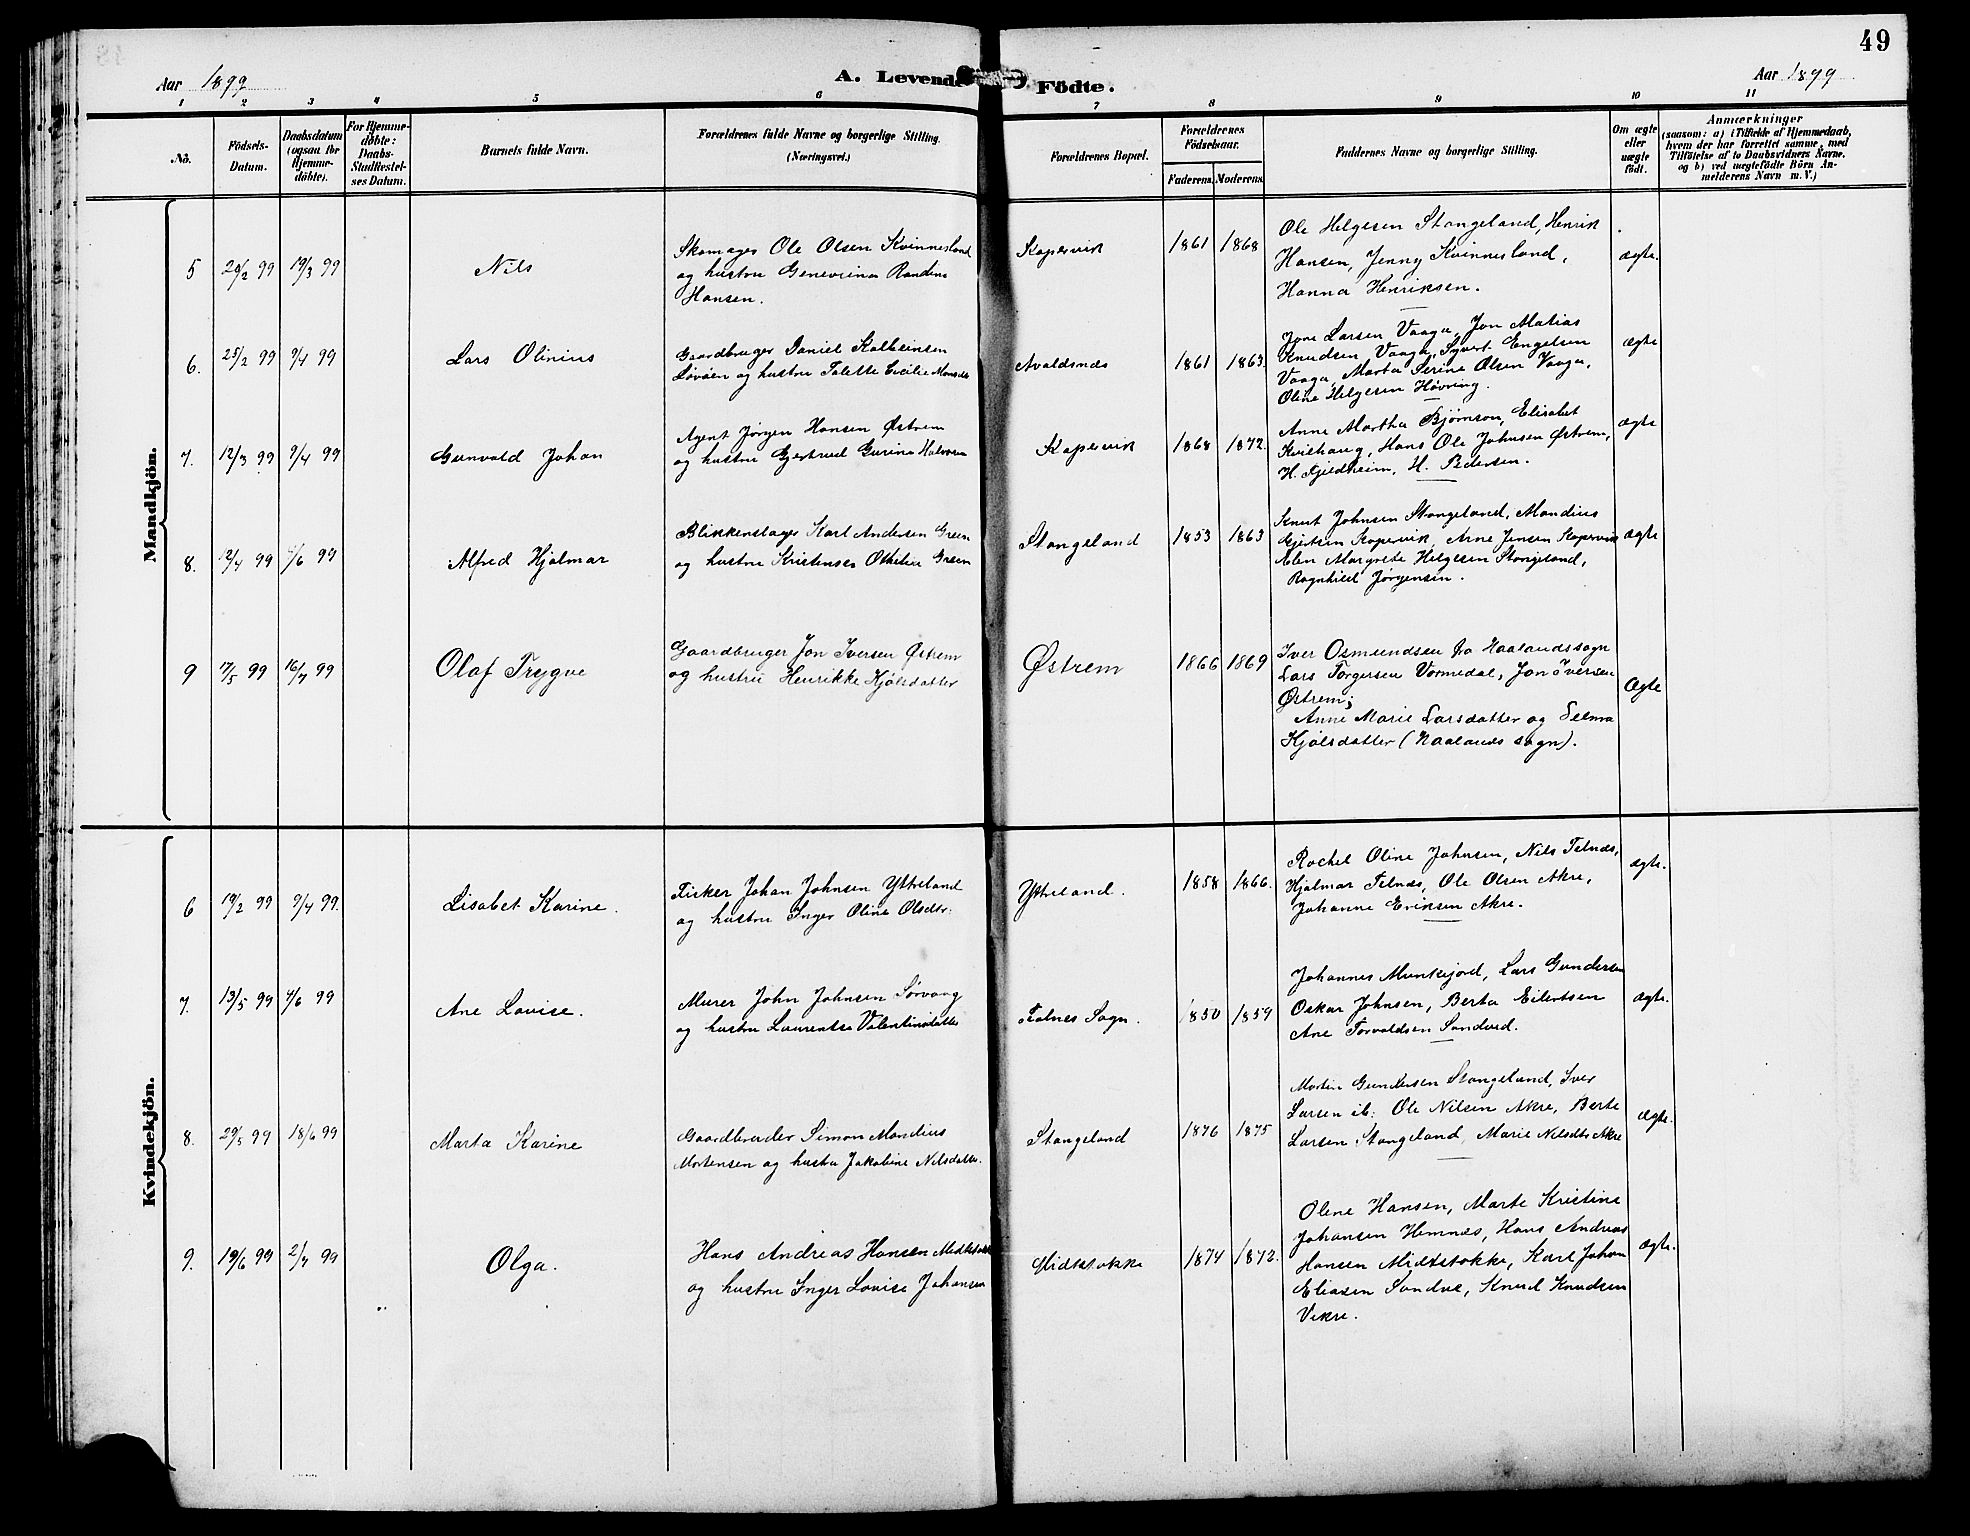 49
Aar 1899
A. Levende Födte.
Aar 1899
1 2 3 4 5 6 7 8 9 10 11
No.
Födsels-Datum.
Daabsdatum (ogsaa for Hjemme-döbte).
For Hjemme-döbte: Daabs-Stadfæstel-ses Datum.
Barnets fulde Navn.
Forældrenes fulde Navne og borgerlige Stilling. (Næringsvei.)
Forældrenes Bopæl.
Forældrenes Födselsaar.
Faderens. Moderens.
Faddernes Navne og borgerlige Stilling.
Om ægte eller uægte födt.
Anmærkninger
(saasom: a) i Tilfælde af Hjemmedaab, hvem der har forrettet samme, med Tilföielse af to Daabsvidners Navne, og b) ved uægtefödte Börn Anmelderens Navn m. V.)
Mandkjön.
5 29/2 99 19/3 99 Nils
Skomager Ole Olsen Kvinnesland
og hustru Genevrina Randine
Hansen.
Kopervik 1861 1868
Ole Helgesen Stangeland, Henrik
Hansen, Jenny Kvinnesland,
Hanna Henriksen.
ægte.
6. 25/2 99 9/4 99 Lars Olinius
Gaardbruger Daniel Kolbeinsen
Løvøen og hustru Talette Cecilie Monsdtr
Avaldsnes 1861 1863.
Jone Larsen Vaaga, Jon Matias
Knudsen Vaaga, Syvert Engelsen
Vaaga, Marta Serine Olsen Vaaga,
Oline Helgesen Høvring.
ægte
7. 12/3 99 9/4 99 Gunvald Johan
Agent Jørgen Hansen Østrem
og hustru Gjertrud Gurine Halvorsen
Kopervik 1868 1872.
Anne Martha Bjørnson, Elisabet
Kvilhaug, Hans Ole Johnsen Østrem,
H. Kjeldheim, H. Pedersen.
ægte
8. 12/4 99 4/6 99 Alfred Hjalmar
Blikkenslager Karl Andersen Green
og hustru Kristense Othelie Green
Stangeland 1853 1863
Knut Johnsen Stangeland, Mandius
Gjertsen Kopervik, Arne Jensen Kopervik
Elen Margrete Helgesen Stangeland,
Ragnhild Jørgensen.
ægte
9 17/5 99 16/7 99 Olaf Trygve
Gaardbruger Jon Iversen Østrem
og hustru Henrikke Kjølsdatter
Østrem 1866 1869
Iver Osmundsen fra Naalandssogn
Lars Torgersen Vormedal, Jon Iversen
Østrem;
Anne Marie Larsdatter og Selma
Kjølsdatter (Naalands sogn).
Ægte
Kvindekjön.
6 19/2 99 9/4 99. Lisabet Karine.
Fisker Johan Johnsen Ytreland
og hustru Inger Oline Olsdtr.
Ytreland. 1858 1866.
Rachel Oline Johnsen, Nils Felnæs,
Hjalmar Felnæs, Ole Olsen Akre,
Johanne Eriksen Akre.
ægte.
7. 13/5 99 4/6 99 Ane Lovise.
Murer John Johnsen Sørvaag
og hustru Laurentse Valentinsdatter
Falnes Sogn. 1850 1859
Johannes Munkejord, Lars Gundersen
Oskar Johnsen, Berta Eilertsen
Ane Torvaldsen Sandved.
ægte.
8. 29/5 99 18/6 99 Marta Karine
Gaardbruder Simon Mandius
Mortensen og hustru Jakobine Nilsdatter.
Stangeland 1876 1875
Martin Gundersen Stangeland, Iver
Larsen ib: Ole Nilsen Akre, Berte
Larsen Stangeland, Marie Nilsdtr Akre
ægte.
9. 19/6 99 2/7 99 Olga.
Hans Andreas Hansen Midtstokke
og hustru Inger Lovise Johansen
Midtstokke 1874 1872.
Olene Hansen, Marte Kristine
Johansen Hemnæs, Hans Andreas
Hansen Midtstokke, Karl Johan
Eliasen Sandve, Knud Knudsen
Vikre.
ægte.